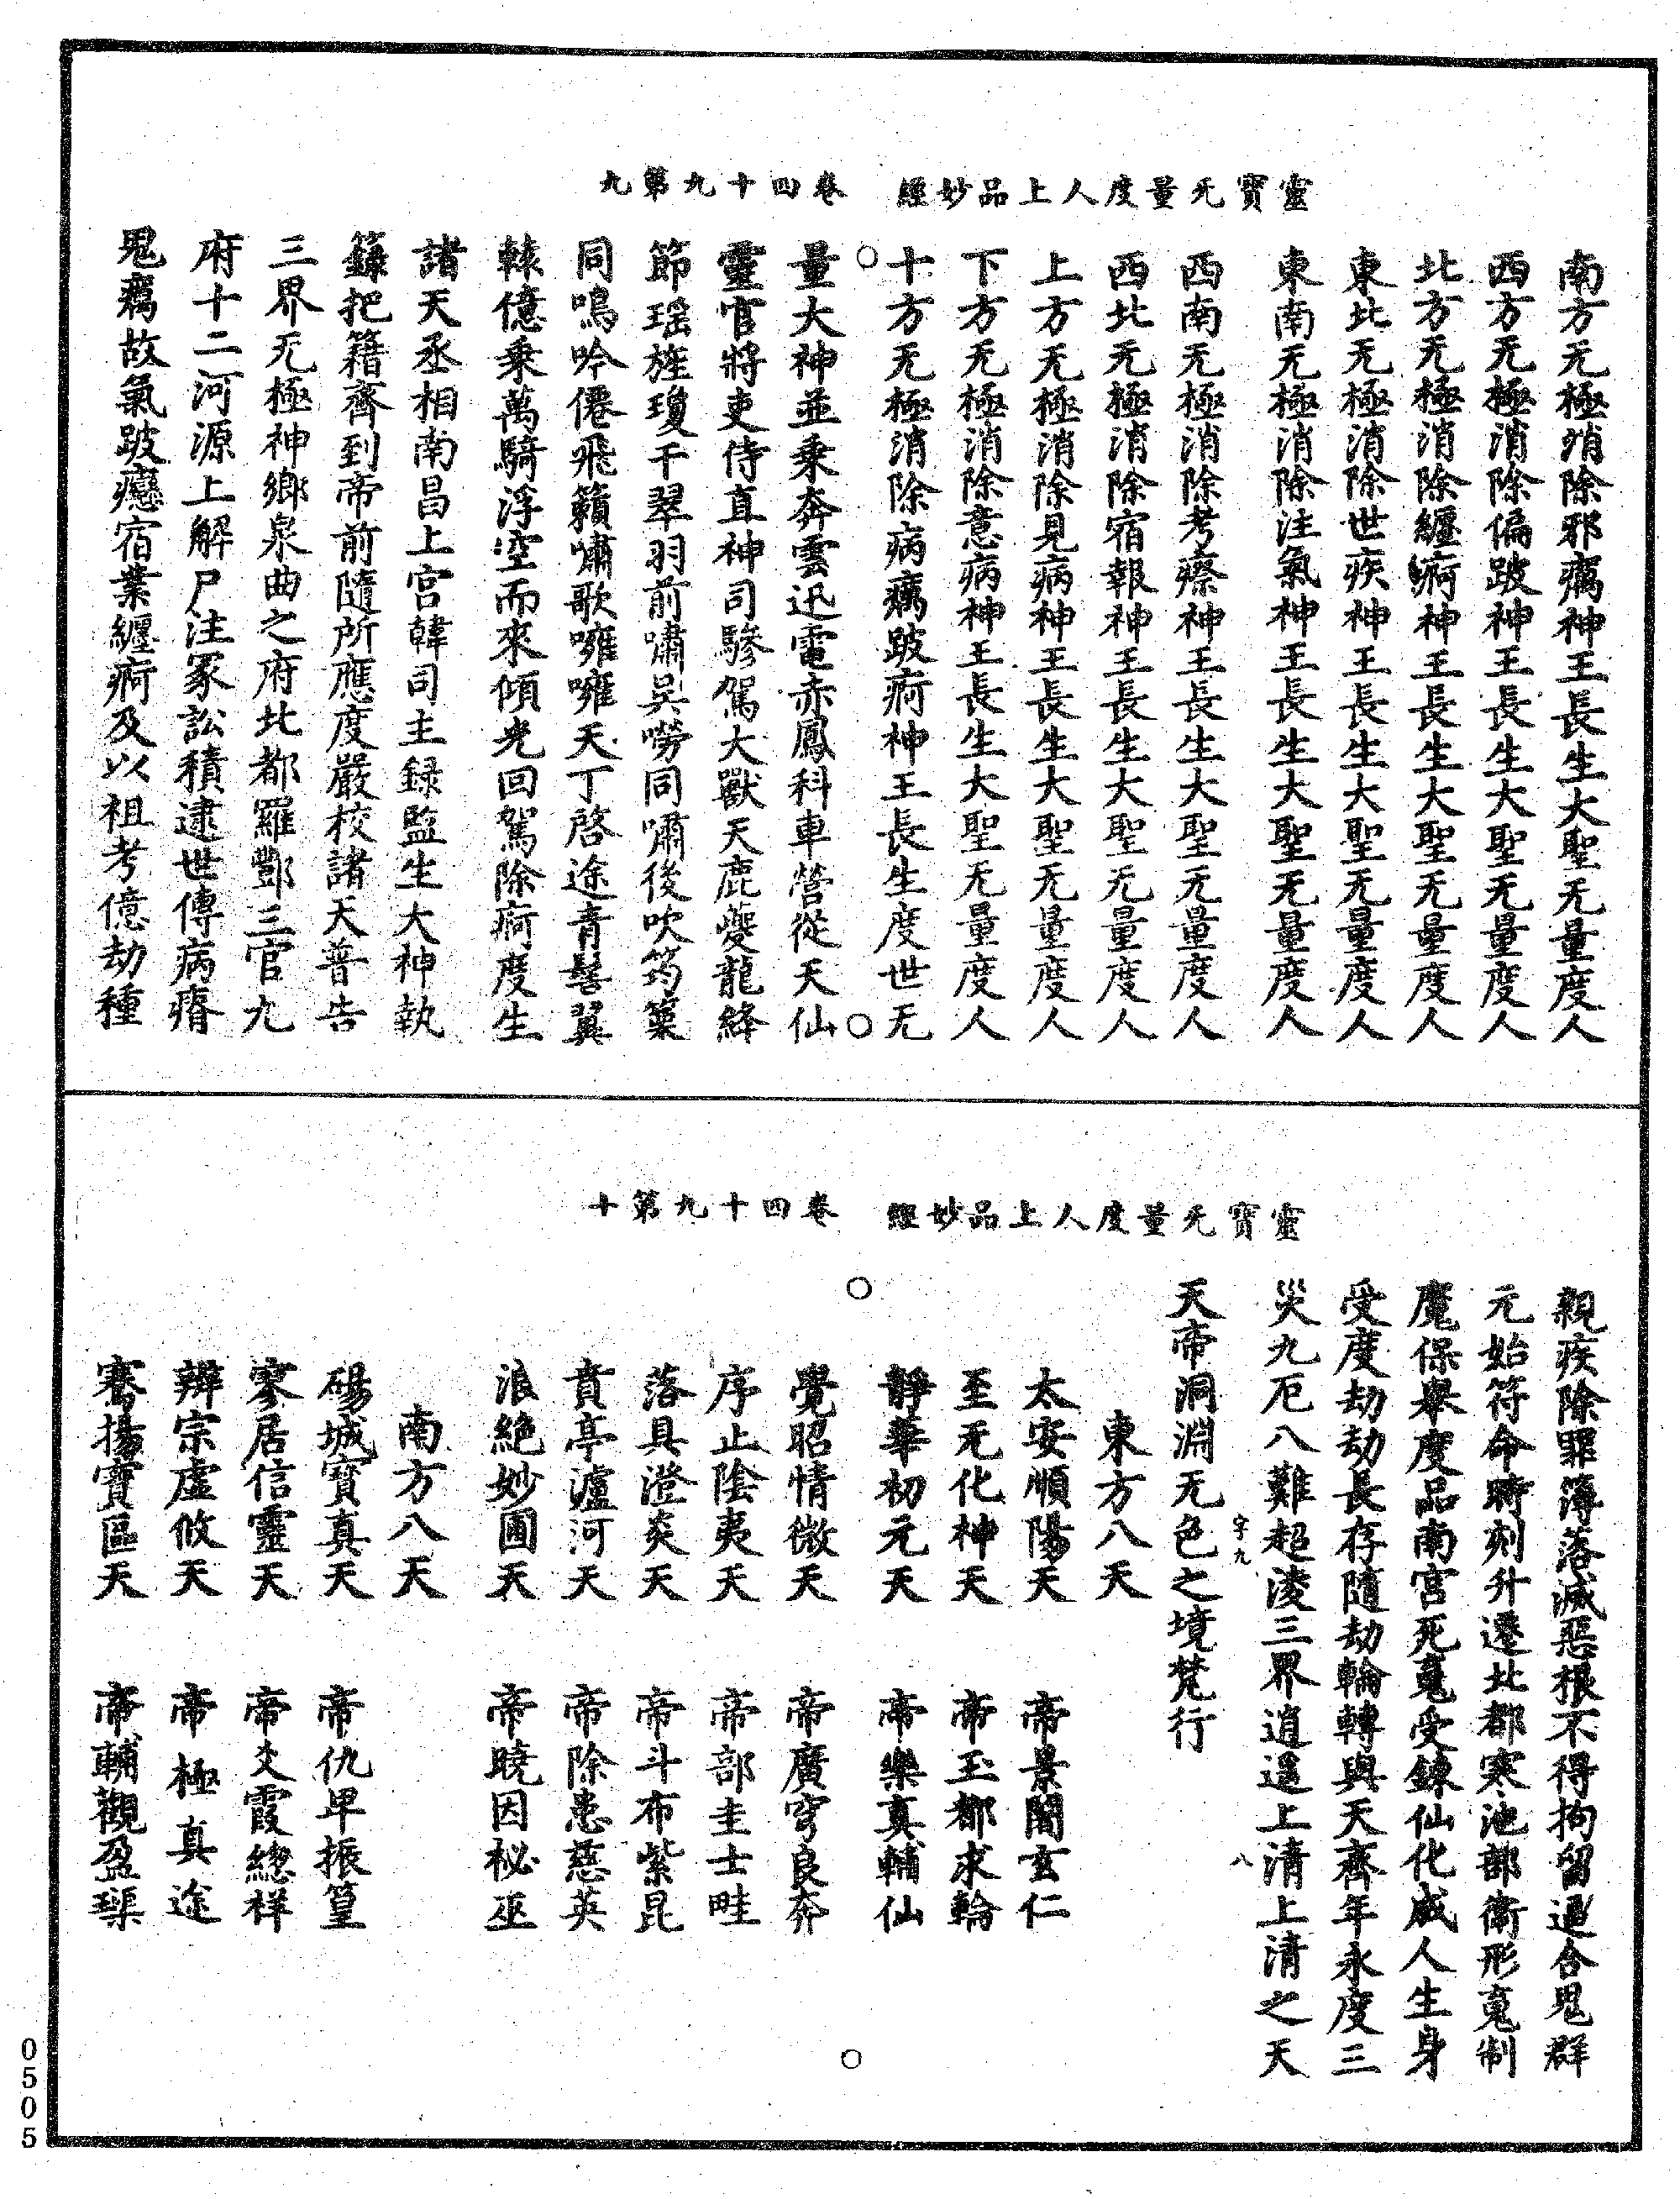 靈寶无量度人上品妙經　卷四十九第九
南方无極消除邪癘神王長生大聖无量度人
西方无極消除偏跛神王長生大聖无量度人
北方无極消除纏痾神王長生大聖无量度人
東北无極消除世疾神王長生大聖无量度人
東南无極消除注氣神王長生大聖无量度人
西南无極消除考瘵神王長生大聖无量度人
西北无極消除宿報神王長生大聖无量度人
上方无極消除見病神王長生大聖无量度人
下方无極消除意病神王長生大聖无量度人
十方无極消除病癘跛痾神王長生度世无
量大神並乘奔雲迅電赤鳳科車營從天仙
靈官將吏侍直神司驂駕大獸天鹿夔龍絳
節瑶旌瓊千翠羽前嘯吳嘮同嘯後吹笃篥
同鳴吟僊飛籟嘯歌嗺嗺天丁啓途青髻翼
轅億乘萬騎浮空而來傾光回駕除痾度生
諸天丞相南昌上宫韓司主録監生大神執
籙把籍齊到帝前隨所應度嚴校諸天普告
三界无極神鄉泉曲之府北都羅酆三官九
府十二河源上解尸注冢訟積逮世傳病瘠
鬼癘故氣跛癮宿業纏痾及以祖考億劫種
靈寶无量度人上品妙經　卷四十九第十
親疾除罪簿落滅惡根不得拘留逼合鬼群
元始符命時刻升遷北都寒池部衛形䰟制
魔保舉度品南宮死䰟受鍊仙化成人生身
受度劫劫長存隨劫輪轉與天齊年永度三
災九厄八難超淩三界逍遥上清上清之天
字九　八
天帝洞淵无色之境梵行
東方八天
太安順陽天　帝景闇玄仁
至无化神天　帝玉都求輪
靜華初元天　帝樂真輔仙
覺昭情微天　帝廣穹良奔
序止陰夷天　帝部圭士畦
落具澄炎天　帝斗布紫昆
賁亭瀘河天　帝除患慈英
浪絶妙圃天　帝曉因祕巫
南方八天
碭城寳真天　帝仇卑振篁
寥居信靈天　帝爻霞緫祥
辯宗虛攸天　帝極真途
騫揚寳區天　帝輔觀盈琹
0505